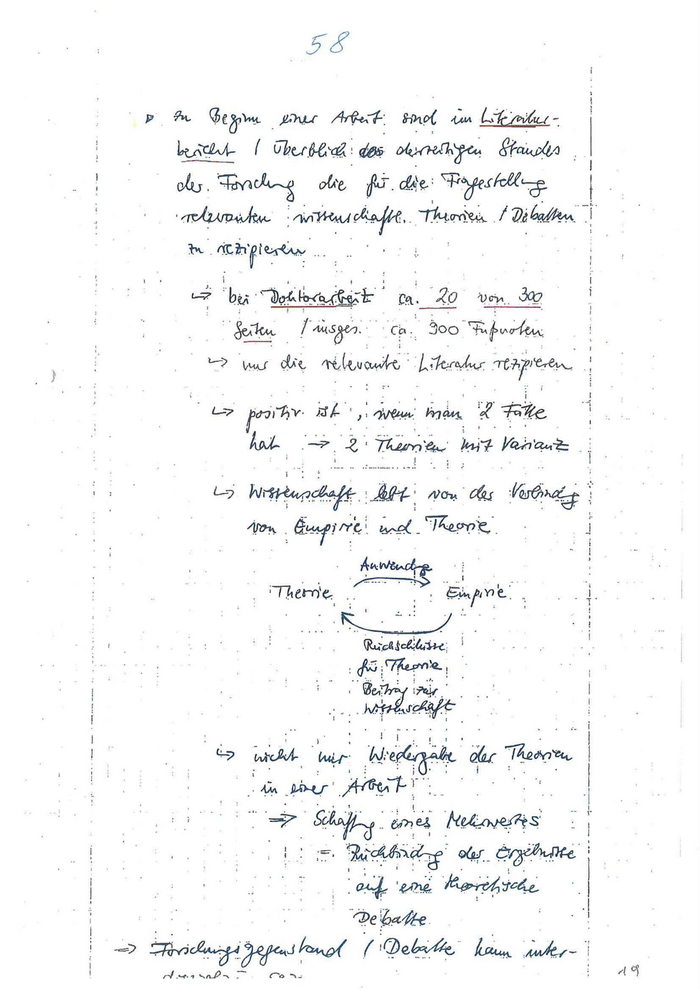 58
▷ zu Beginn einer Arbeit sind im Literatur-
bericht / Überblick des derzeitigen Standes
der Forschung die für die Fragestellung
relevanten wissenschaftl. Theorien / Debatten
zu rezipieren
↳ bei Doktorarbeit ca. 20 von 300
Seiten / insges. ca. 900 Fußnoten
↳ nur die relevante Literatur rezipieren
↳ positiv ist, wenn man 2 Fälle
hat → 2 Theorien mit Varianz
↳ Wissenschaft lebt von der Verbindg
von Empirie und Theorie
Anwendg
Theorie Empirie
Rückschlüsse
für Theorie
Beitrag zur
Wissenschaft
↳ nicht nur Wiedergabe der Theorien
in einer Arbeit
⇒ Schaffg eines Mehrwertes
= Rückbindg der Ergebnisse
auf eine theoretische
Debatte
⇒ Forschungsgegenstand / Debatte kann inter-
19